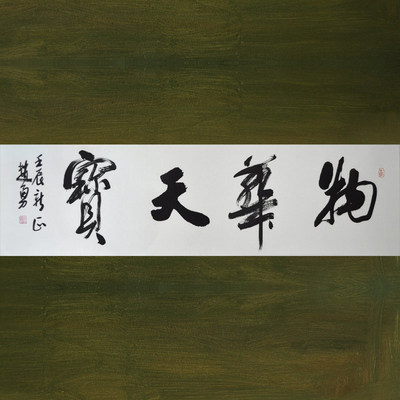 物華天寶
壬辰新正
趙勇